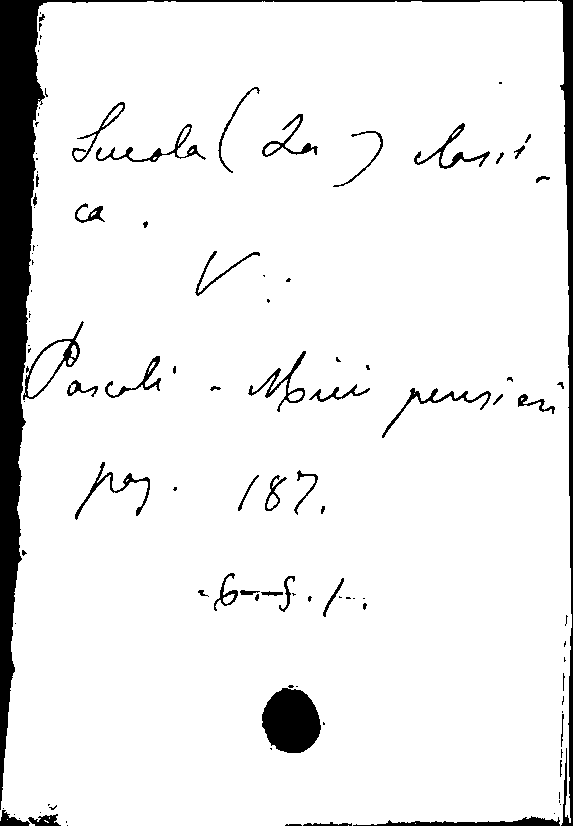 Scuola (La) classi-
ca.
V:
Pascoli - Miei pensieri
pag. 187.